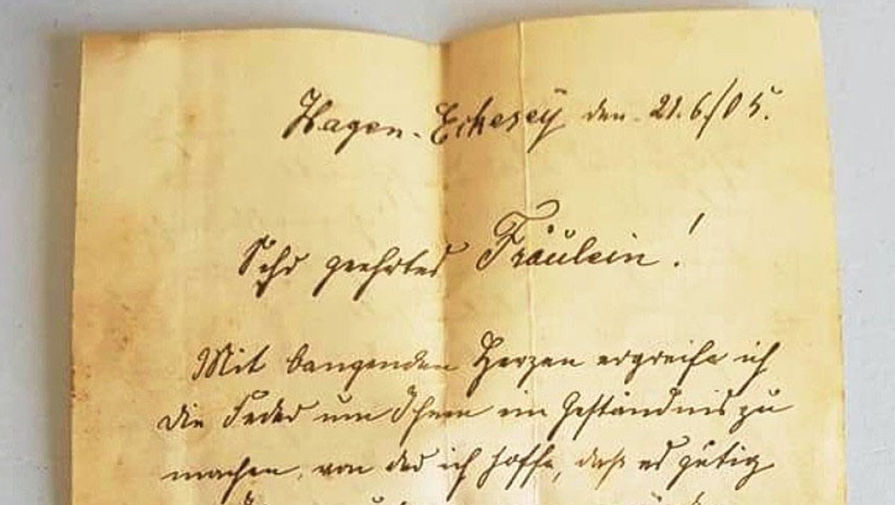 Hagen-Eckesey den 21.6./05.
Sehr geehrtes Fräulein!
Mit bangenden Herzen ergreife ich
die Feder um Ihnen ein Geständnis zu
machen, von der ich hoffe, daß es gütig